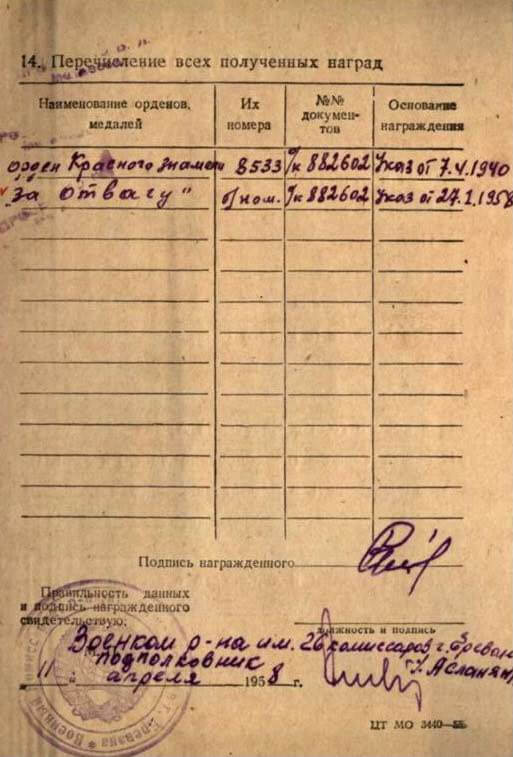 14. Перечисление всех полученных наград
Наименование орденов, медалей
Их номера
№№ документов
Основание награждения
орден Красного Знамени 8533 о/к 882602 Указ от 7.4.1940
"за отвагу" б/ном. о/к 882602 Указ от 27.1.1958
Подпись награжденного
Правильность данных
и подпись награжденного
свидетельствую:
должность и подпись
Военком р-на им. 26 комиссаров г. Еревана
подполковник
Асланян
11 апреля 1958 г.
ЦТ МО 3440—55